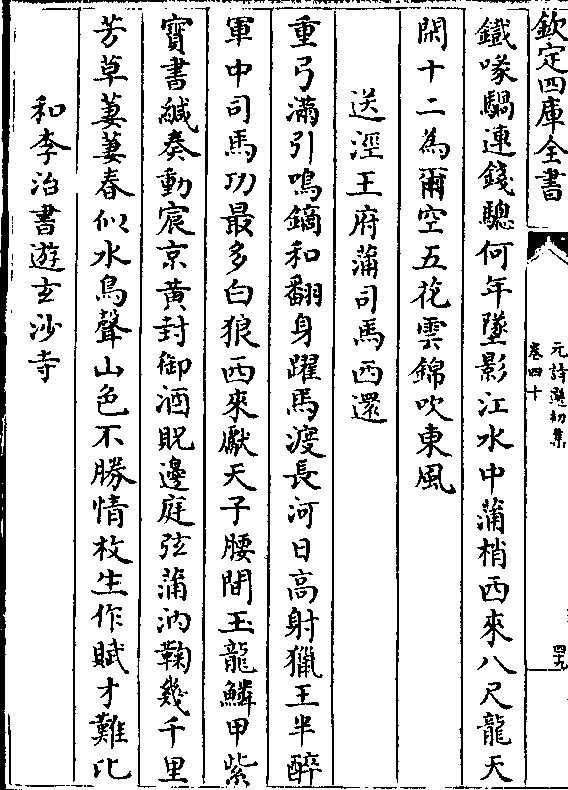 欽定四庫全書
元詩選初集
卷四十
四九
鐵喙騧連錢驄何年墜影江水中蒲梢西來八尺龍天
閑十二為爾空五花雲錦吹東風
送涇王府蒲司馬西還
重弓滿引鳴鏑和翻身躍馬渡長河日高射獵王半醉
軍中司馬功最多白狼西來獻天子腰間玉龍鱗甲紫
寶書緘奏動宸京黄封御酒貺邊庭弦蒲汭鞠幾千里
芳草萋萋春似水鳥聲山色不勝情枚生作賦才難比
和李治書遊玄沙寺